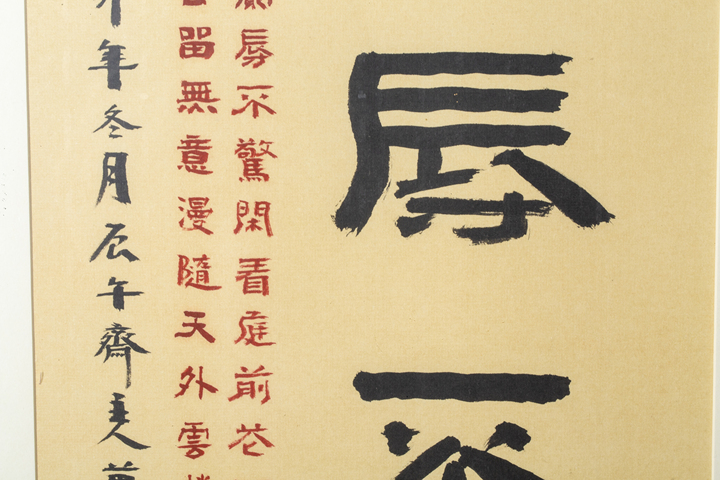 辱不
辱不驚閑看庭前花
留無意漫隨天外雲
年冬月辰午齋主人